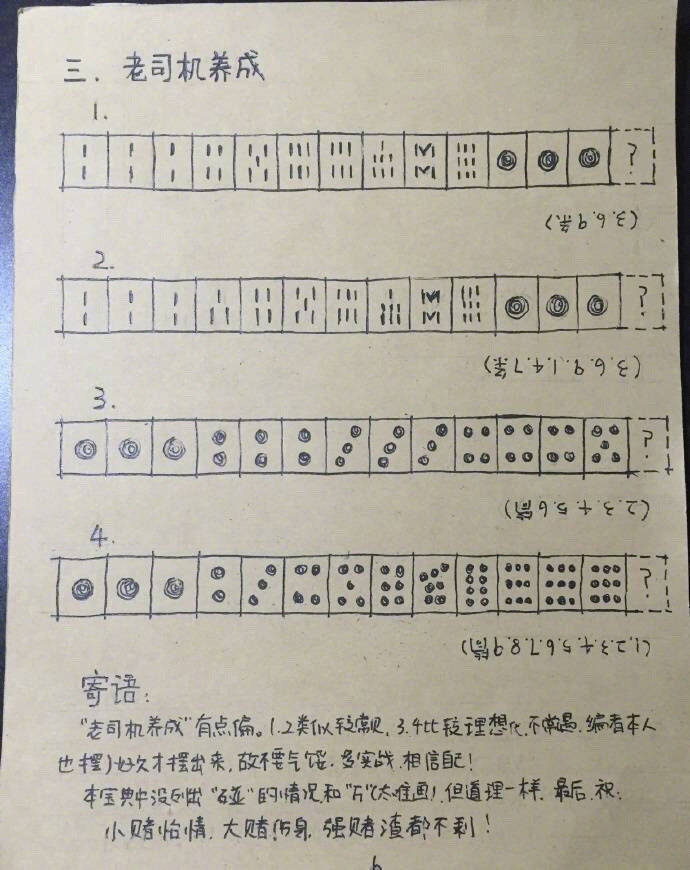 三、老司机养成
1.
?
(3.6.9条)
2.
?
(3.6.9.1.4.7条)
3.
?
(2.3.4.5.6筒)
4.
?
(1.2.3.4.5.6.7.8.9筒)
寄语:
“老司机养成”有点偏。1.2类似较常规, 3.4比较理想化,不常遇.编者本人
也摆了好久才摆出来,故不要气馁.多实战.相信自己!
本宝典中没列出“碰”的情况和“万”(太难画),但道理一样.最后.祝:
小赌怡情.大赌伤身.强赌渣都不剩!
6